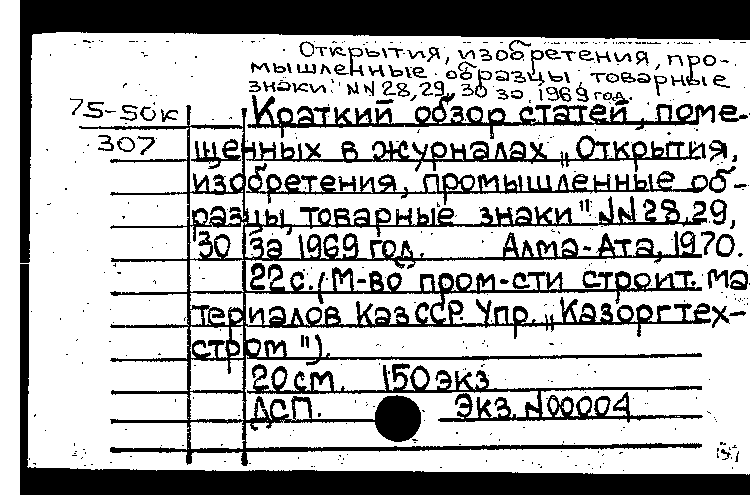 Открытия, изобретения, про-
мышленные образцы, товарные
знаки. NN 28, 29, 30 за 1969 год.
75-50к
Краткий обзор статей, поме-
307
щенных в журналах „Открытия,
изобретения, промышленные об-
разцы, товарные знаки" NN 28, 29,
30 за 1969 год. Алма-Ата, 1970.
22 с. (М-во пром-сти строит. ма
териалов КазССР. Упр. „Казоргтех-
стром").
20 см. 150 экз.
ДСП. Экз. N00004